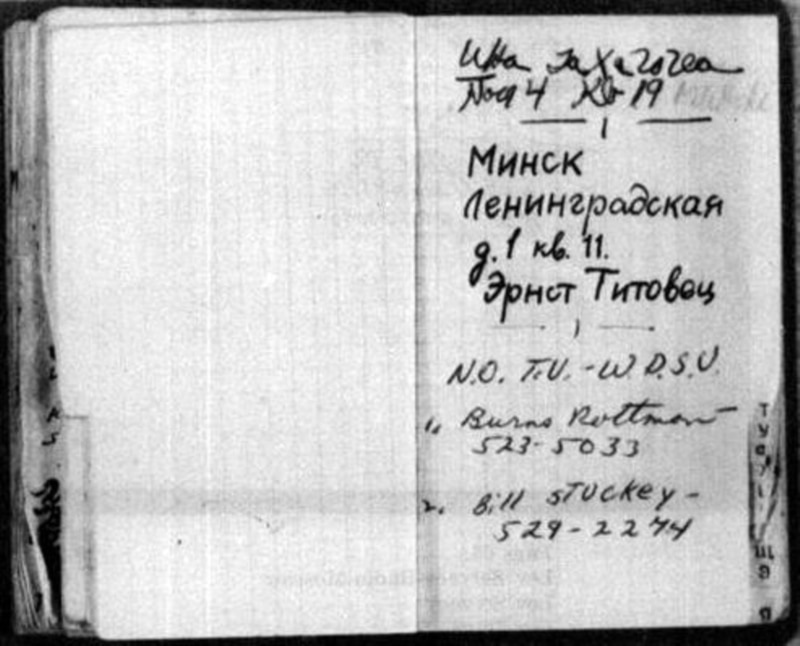 Инна
4 Кв 19
Минск
Ленинградская
д. 1 кв. 11.
Эрнст Титовец
N.O. T.V. - W.D.S.U.
1. Burns Rottman
523-5033
2. Bill STUCKEY -
529-2274